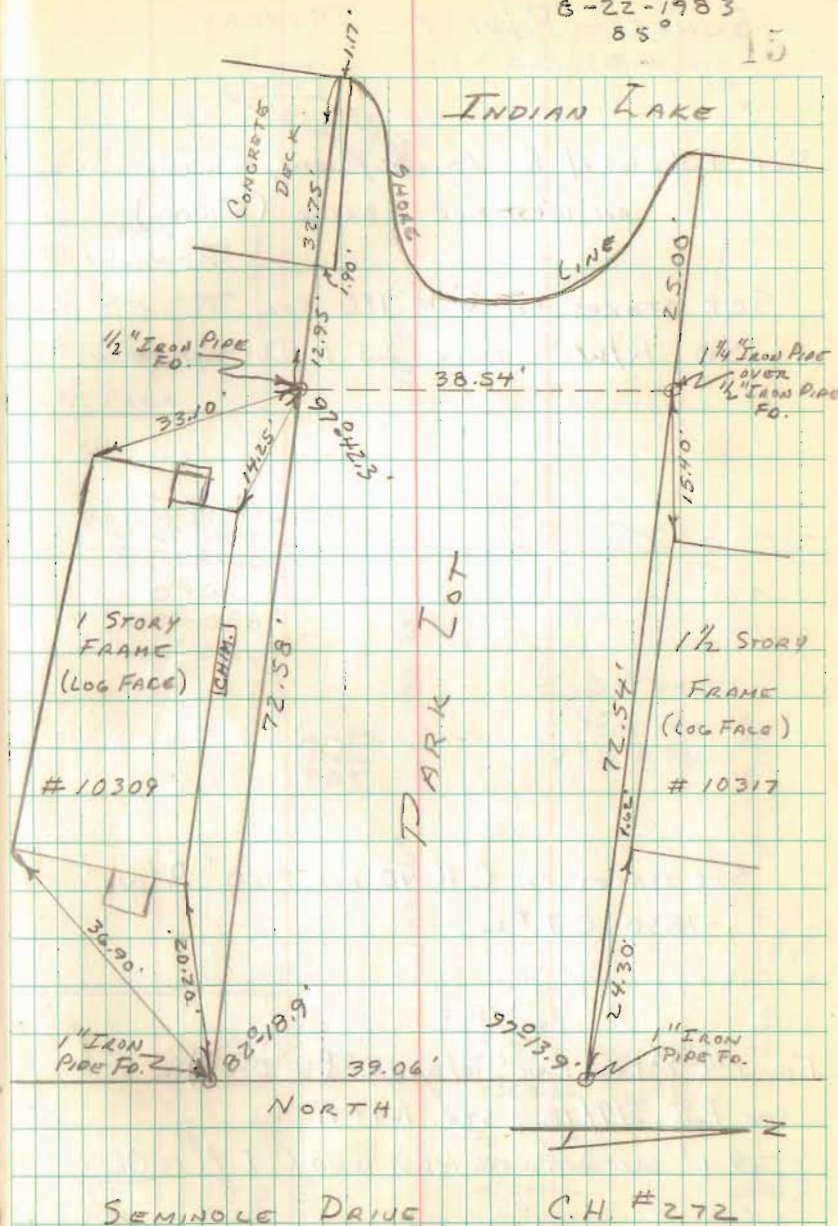 8-22-1983
85°
15
1.17'
INDIAN LAKE
CONCRETE
DECK
32.75'
SHORE
LINE
1.90'
12.95'
25.00'
1/2" IRON PIPE
FD.
38.54'
1 1/4" IRON PIPE
OVER
1/2" IRON PIPE
FD.
33.10'
14.25'
97°-42.3'
15.40'
1 STORY
FRAME
(LOG FACE)
CHIM.
# 10309
72.58'
PARK LOT
72.54'
1 1/2 STORY
FRAME
(LOG FACE)
# 10317
1.62'
36.90'
20.20'
24.30'
1" IRON
PIPE FD.
82°-18.9'
97°-13.9'
1" IRON
PIPE FD.
39.06'
NORTH
Z
SEMINOLE DRIVE C.H. #272